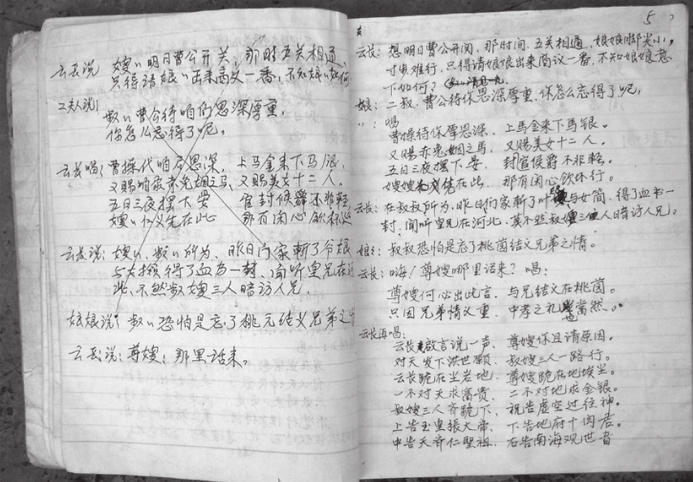 云长说 嫂〃明日曹公开关，那时五关相通，
只得请娘〃出来商议一番，不知娘〃如何
二夫人说：
叔〃曹公待咱们恩深厚重，
你怎么忘得了呢。
云长唱：曹操代咱 恩深， 上马金来下马银，
又赐咱 赤兔 之马，又赐美女十二人。
五日三夜摆下宴 官封候爵不非轻
嫂〃 先在此 那有闲心饮
云长说：嫂〃，叔〃 为，昨日 家斩了
得了血书一封，闻听皇兄在
此，不然叔嫂三人暗访人兄
娘娘说：叔〃恐怕是忘了桃元结义兄弟之
云长说：尊嫂，那里话来。
5
云长：想明日曹公开关，那时间，五关相通，娘娘脚尖小，
寸步难行，只得请娘娘出来商议一番，不知娘娘意
下如何？
娘：二叔，曹公待你恩深厚重，你怎么忘得了呢，
〃：唱
曹操待你厚恩深， 上马金来下马银。
又赐赤兔 之马， 又赐美女十二人。
五日三夜摆下宴， 封官候爵不非轻。
嫂嫂 在此， 那有闲心饮 行。
云长：在叔叔所为，昨日 家斩了 与女简，得了血书一
封，闻听皇兄在河北，莫不然叔嫂三人暗访人兄。
娘〃：叔叔恐怕是忘了桃园结义兄弟之情。
云长：嗨！尊嫂哪里话来？唱：
尊嫂何必出此言，与兄结义在桃园。
只因兄弟情义重， 中孝之礼 当然。
云长再唱：
云长 启言说一声， 尊嫂你且请原因。
对天发下洪世愿， 叔嫂三人一路行。
云长跪在尘岩地， 尊嫂跪在地埃尘。
一不对天求富贵， 二不对地求金银。
叔嫂三人齐跪下， 祝告虚空过往神。
上告玉皇张大帝， 下告地府十阎君。
中告天齐仁圣祖， 右告南海观世音